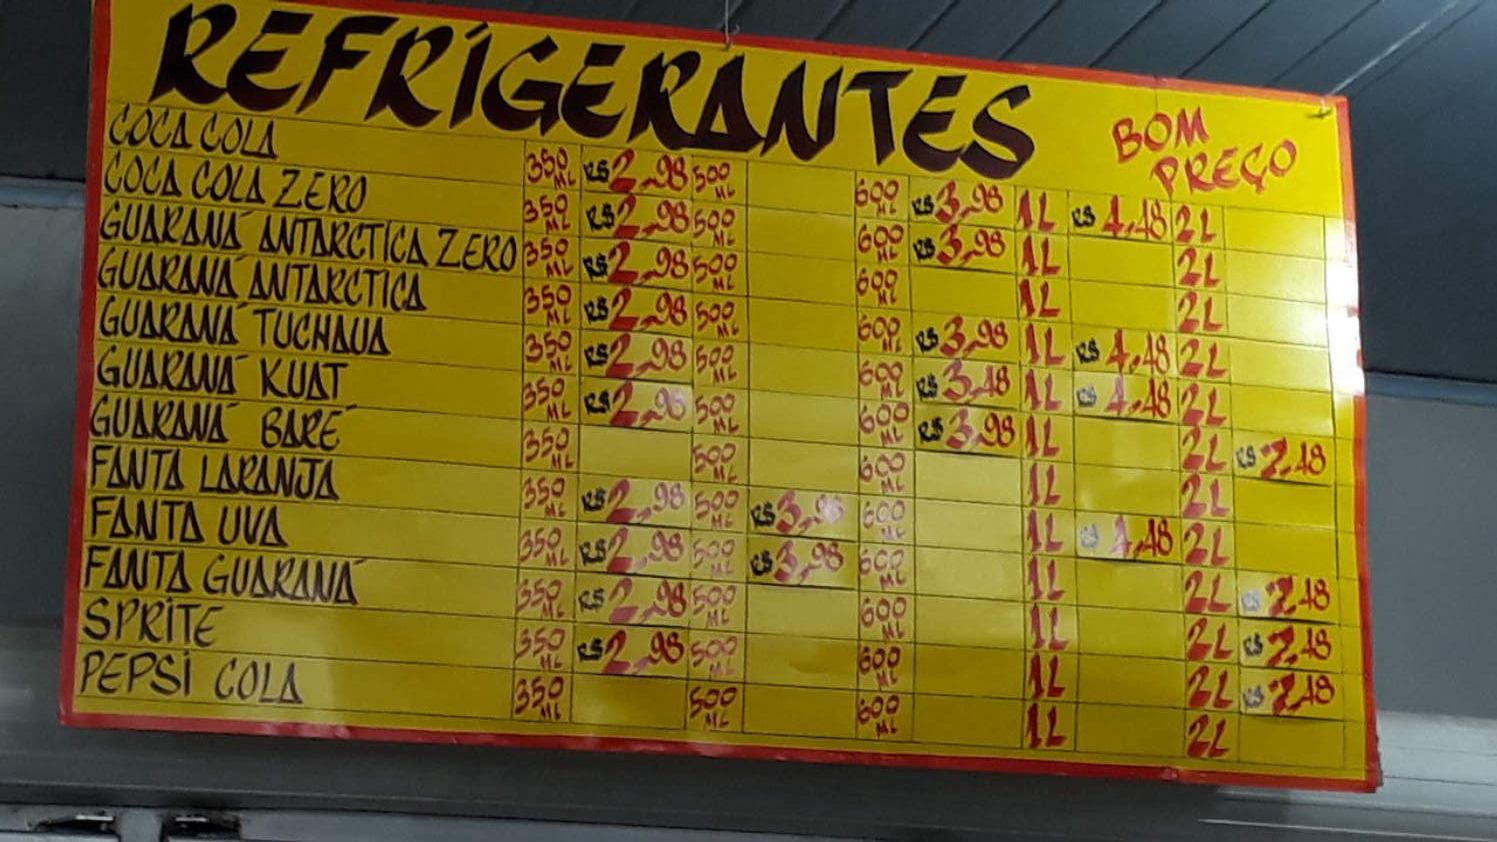 REFRIGERANTES
BOM
PREÇO
COCA COLA 350 ML R$ 2,98 500 ML 600 ML R$ 3,98 1L R$ 4,48 2L
COCA COLA ZERO 350 ML R$ 2,98 500 ML 600 ML R$ 3,98 1L 2L
GUARANÁ ANTARCTICA ZERO 350 ML R$ 2,98 500 ML 600 ML 1L 2L
GUARANÁ ANTARCTICA 350 ML R$ 2,98 500 ML 600 ML R$ 3,98 1L R$ 4,48 2L
GUARANÁ TUCHAUA 350 ML R$ 2,98 500 ML 600 ML R$ 3,48 1L R$ 4,48 2L
GUARANÁ KUAT 350 ML R$ 2,98 500 ML 600 ML R$ 3,98 1L 2L R$
GUARANÁ BARÉ 350 ML 500 ML 600 ML 1L 2L
FANTA LARANJA 350 ML R$ 2,98 500 ML R$ 3,98 600 ML 1L R$ 4,48 2L
FANTA UVA 350 ML R$ 2,98 500 ML R$ 3,98 600 ML 1L 2L R$
FANTA GUARANÁ 350 ML R$ 2,98 500 ML 600 ML 1L 2L R$
SPRITE 350 ML R$ 2,98 500 ML 600 ML 1L 2L R$
PEPSI COLA 350 ML 500 ML 600 ML 1L 2L